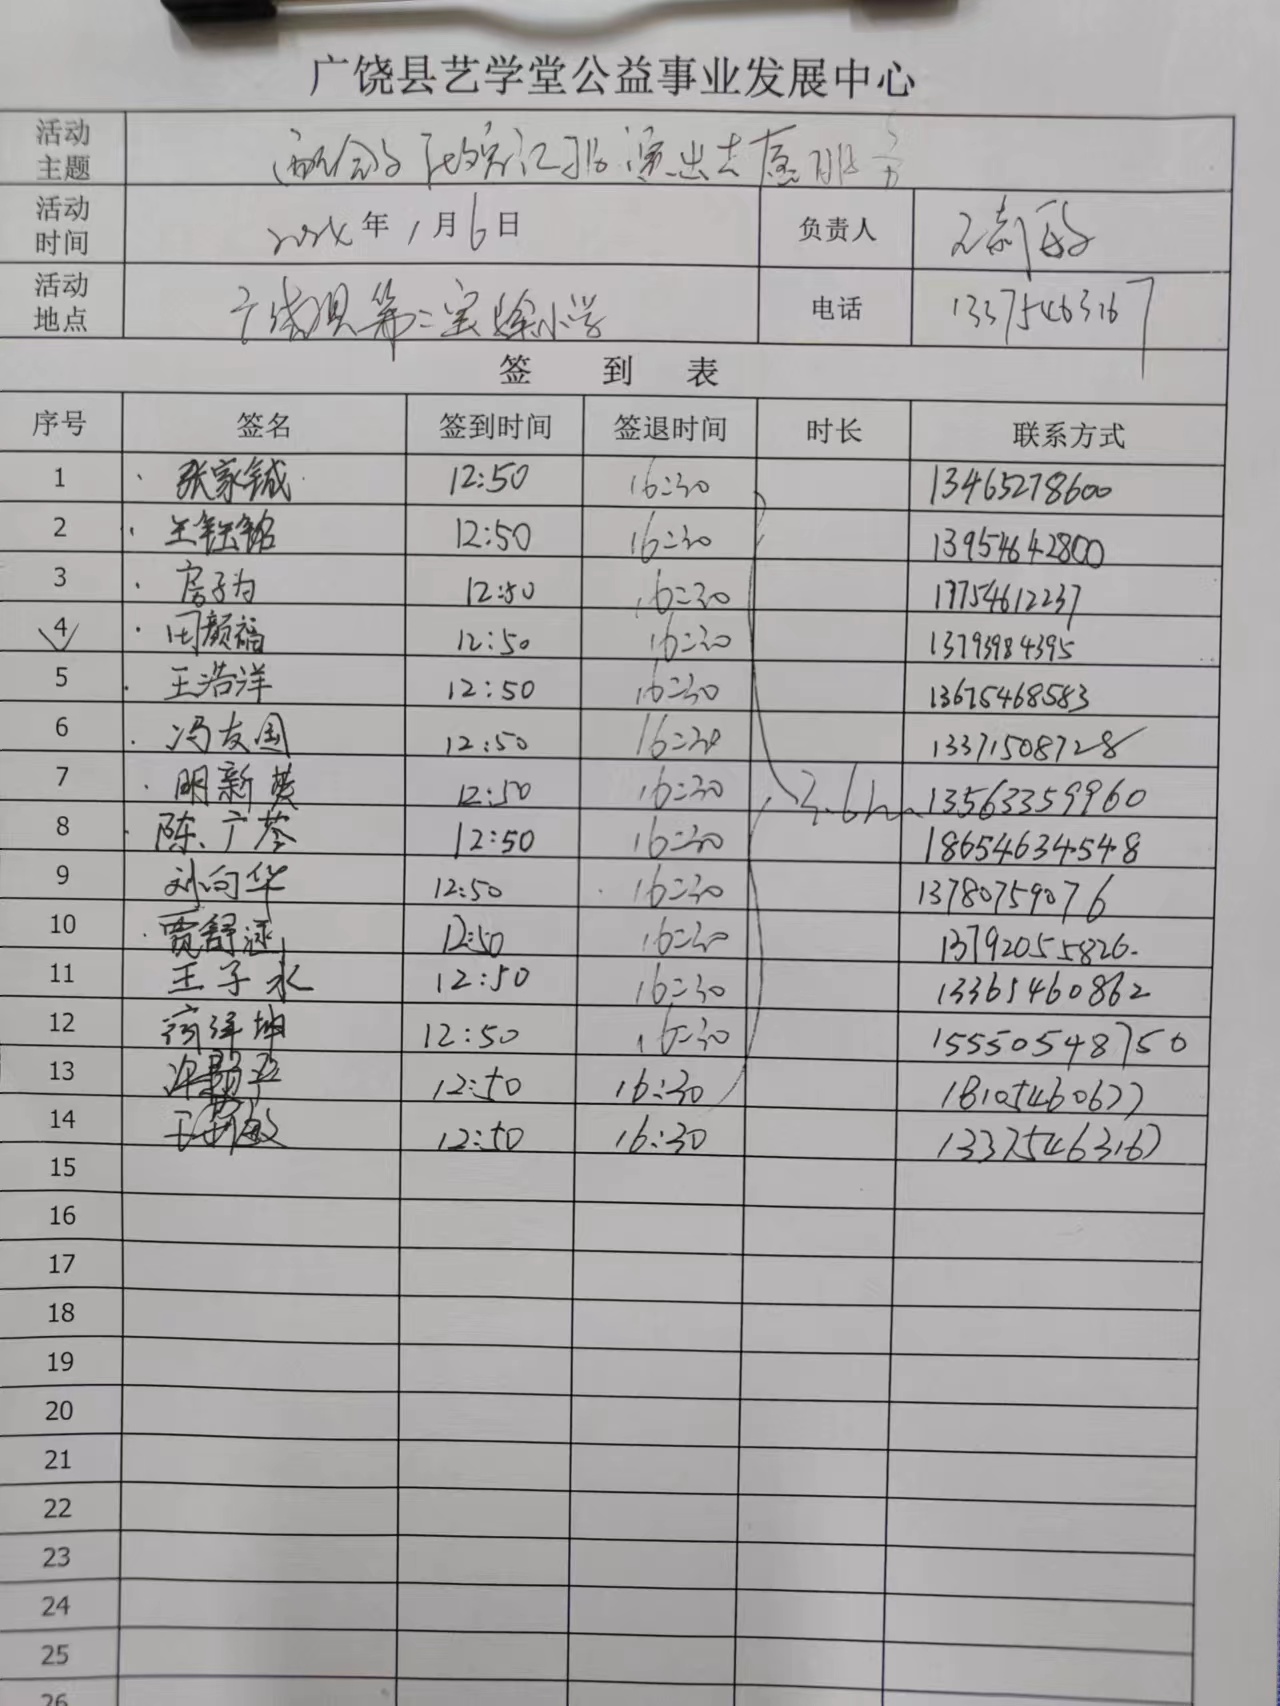 广饶县艺学堂公益事业发展中心
活动主题 演出志愿服务
活动时间 2024年1月6日 负责人
活动地点 广饶县第二实验小学 电话 13375463167
签 到 表
序号 签名 签到时间 签退时间 时长 联系方式
1 张家铖 12:50 16:30 13465278600
2 王钰铭 12:50 16:30 13954642800
3 房子为 12:50 16:30 19754612237
4 田颜福 12:50 16:30 13793984395
5 王浩洋 12:50 16:30 13675468583
6 冯友国 12:50 16:30 13371508728
7 明新英 12:50 16:30 3.6h 13563359960
8 陈广苓 12:50 16:30 18654634548
9 刘向华 12:50 16:30 13780759076
10 贾舒涵 12:50 16:30 13792055826
11 王子永 12:50 16:30 13365460862
12 12:50 16:30 15550548750
13 12:50 16:30 18105460677
14 12:50 16:30 13375463167
15
16
17
18
19
20
21
22
23
24
25
26